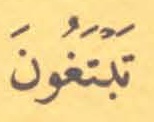 تَبْتَغُونَ